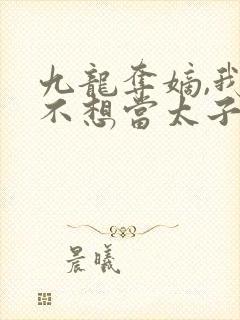 九龍奪嫡,我
不想當太子
晨曦